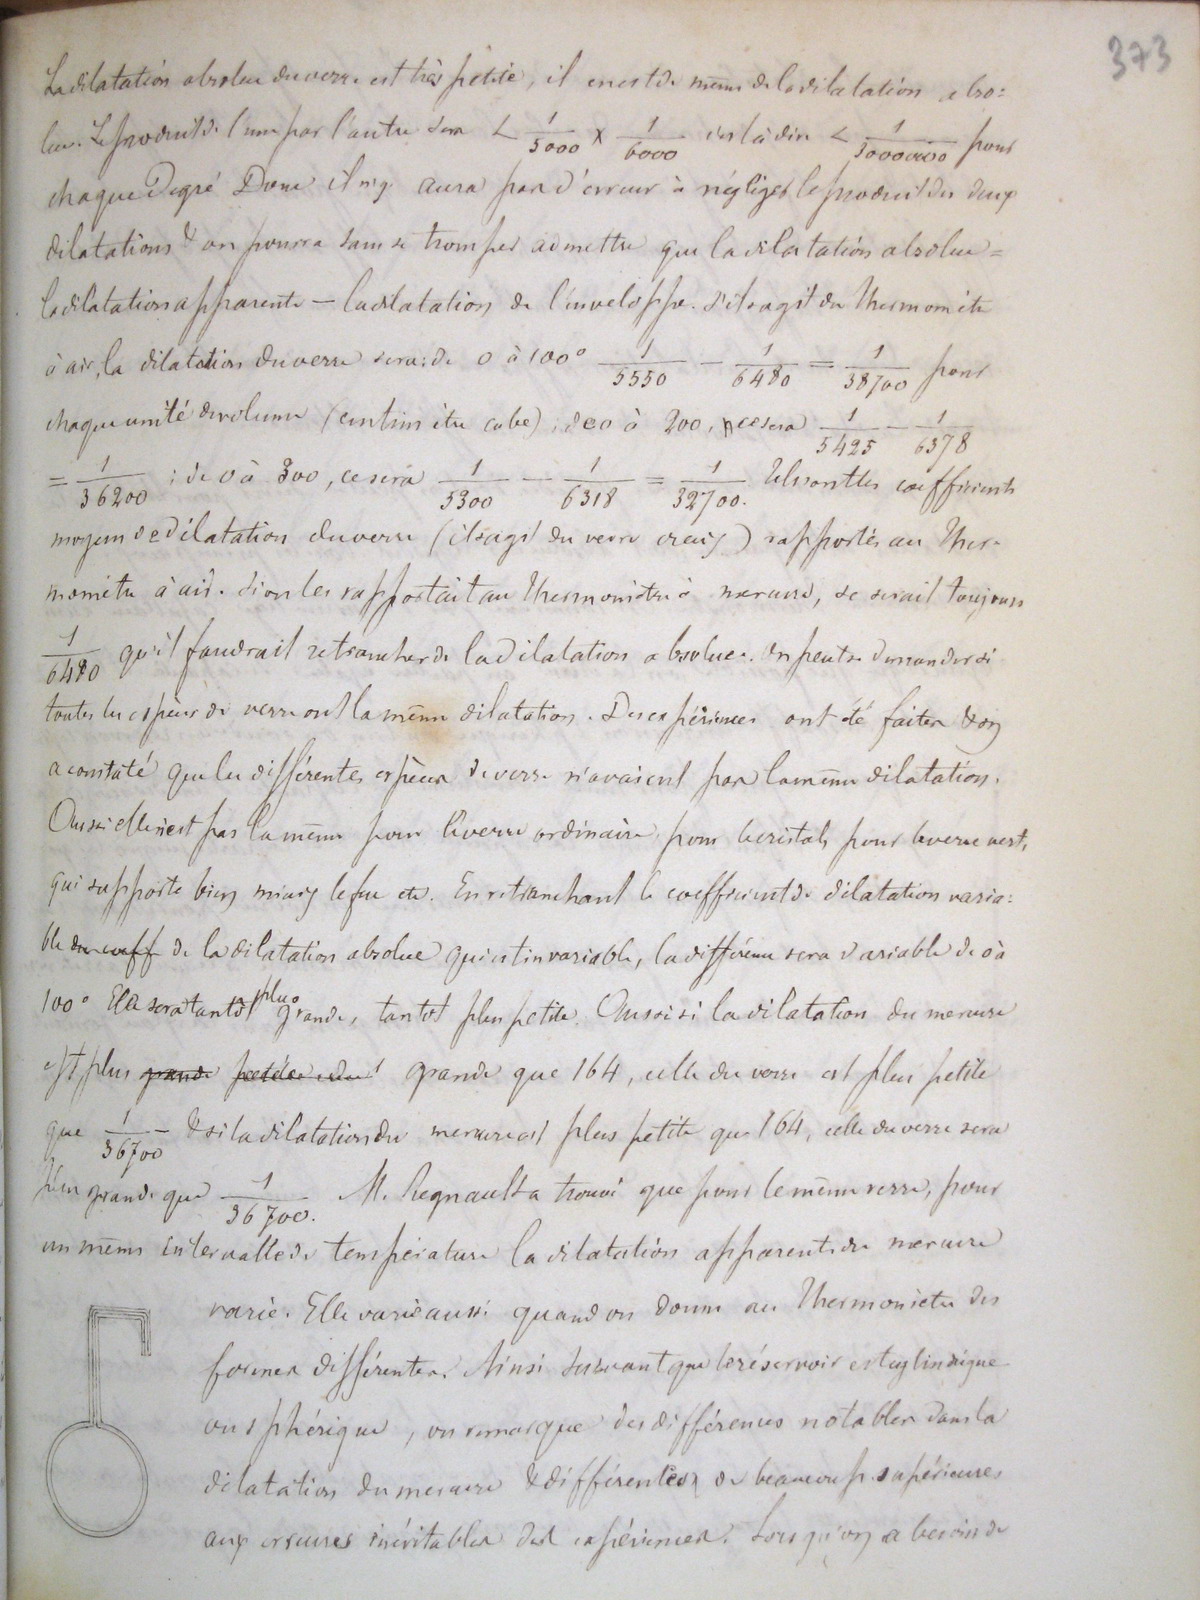 373
La dilatation absolue du verre est très petite, il en est de même de la dilatation abso=
lue. Le produit de l'une par l'autre sera < 1/5000 × 1/6000 c'est à dire < 1/30000000 pour
chaque degré Donc il n'y aura pas d'erreur à négliger le produit des deux
dilatations & on pourra sans se tromper admettre que la dilatation absolue =
la dilatation apparente — la dilatation de l'enveloppe. S'il s'agit du thermomètre
à air, la dilatation du verre sera : de 0 à 100° 1/5550 — 1/6480 = 1/38700 pour
chaque unité de volume (centimètre cube) ; de 0 à 200, ce sera 1/5425 — 1/6378
= 1/36200 ; de 0 à 300, ce sera 1/5300 — 1/6318 = 1/32700. Tels sont les coefficients
moyens de dilatation du verre (il s'agit du verre creux) rapportés au ther-
momètre à air. Si on les rapportait au thermomètre à mercure, se serait toujours
1/6480 qu'il faudrait retrancher de la dilatation absolue. On peut se demander si
toutes les espèces de verre ont la même dilatation. Des expériences ont été faites & on
a constaté que les différentes espèces de verre n'avaient pas la même dilatation.
Aussi elle n'est pas la même pour le verre ordinaire, pour le cristal, pour le verre vert,
qui supporte bien mieux le feu etc. En retranchant le coefficient de dilatation varia=
ble du coeff de la dilatation absolue qui est invariable, la différence sera variable de 0 à
100° Elle sera tantôt plus grande, tantôt plus petite. Aussi si la dilatation du mercure
est plus grande petite grande que 164, celle du verre est plus petite
que 1/36700 — & si la dilatation du mercure est plus petite que 164, celle du verre sera
plus grande que 1/36700. M. Regnault a trouvé que pour le même verre, pour
un même intervalle de température la dilatation apparente du mercure
varie. Elle varie aussi quand on donne au thermomètre des
formes différentes. Ainsi suivant que le réservoir est cylindrique
ou sphérique, on remarque des différences notables dans la
dilatation du mercure & différentes de beaucoup supérieures
aux erreurs inévitables des expériences. Lorsqu'on a besoin de